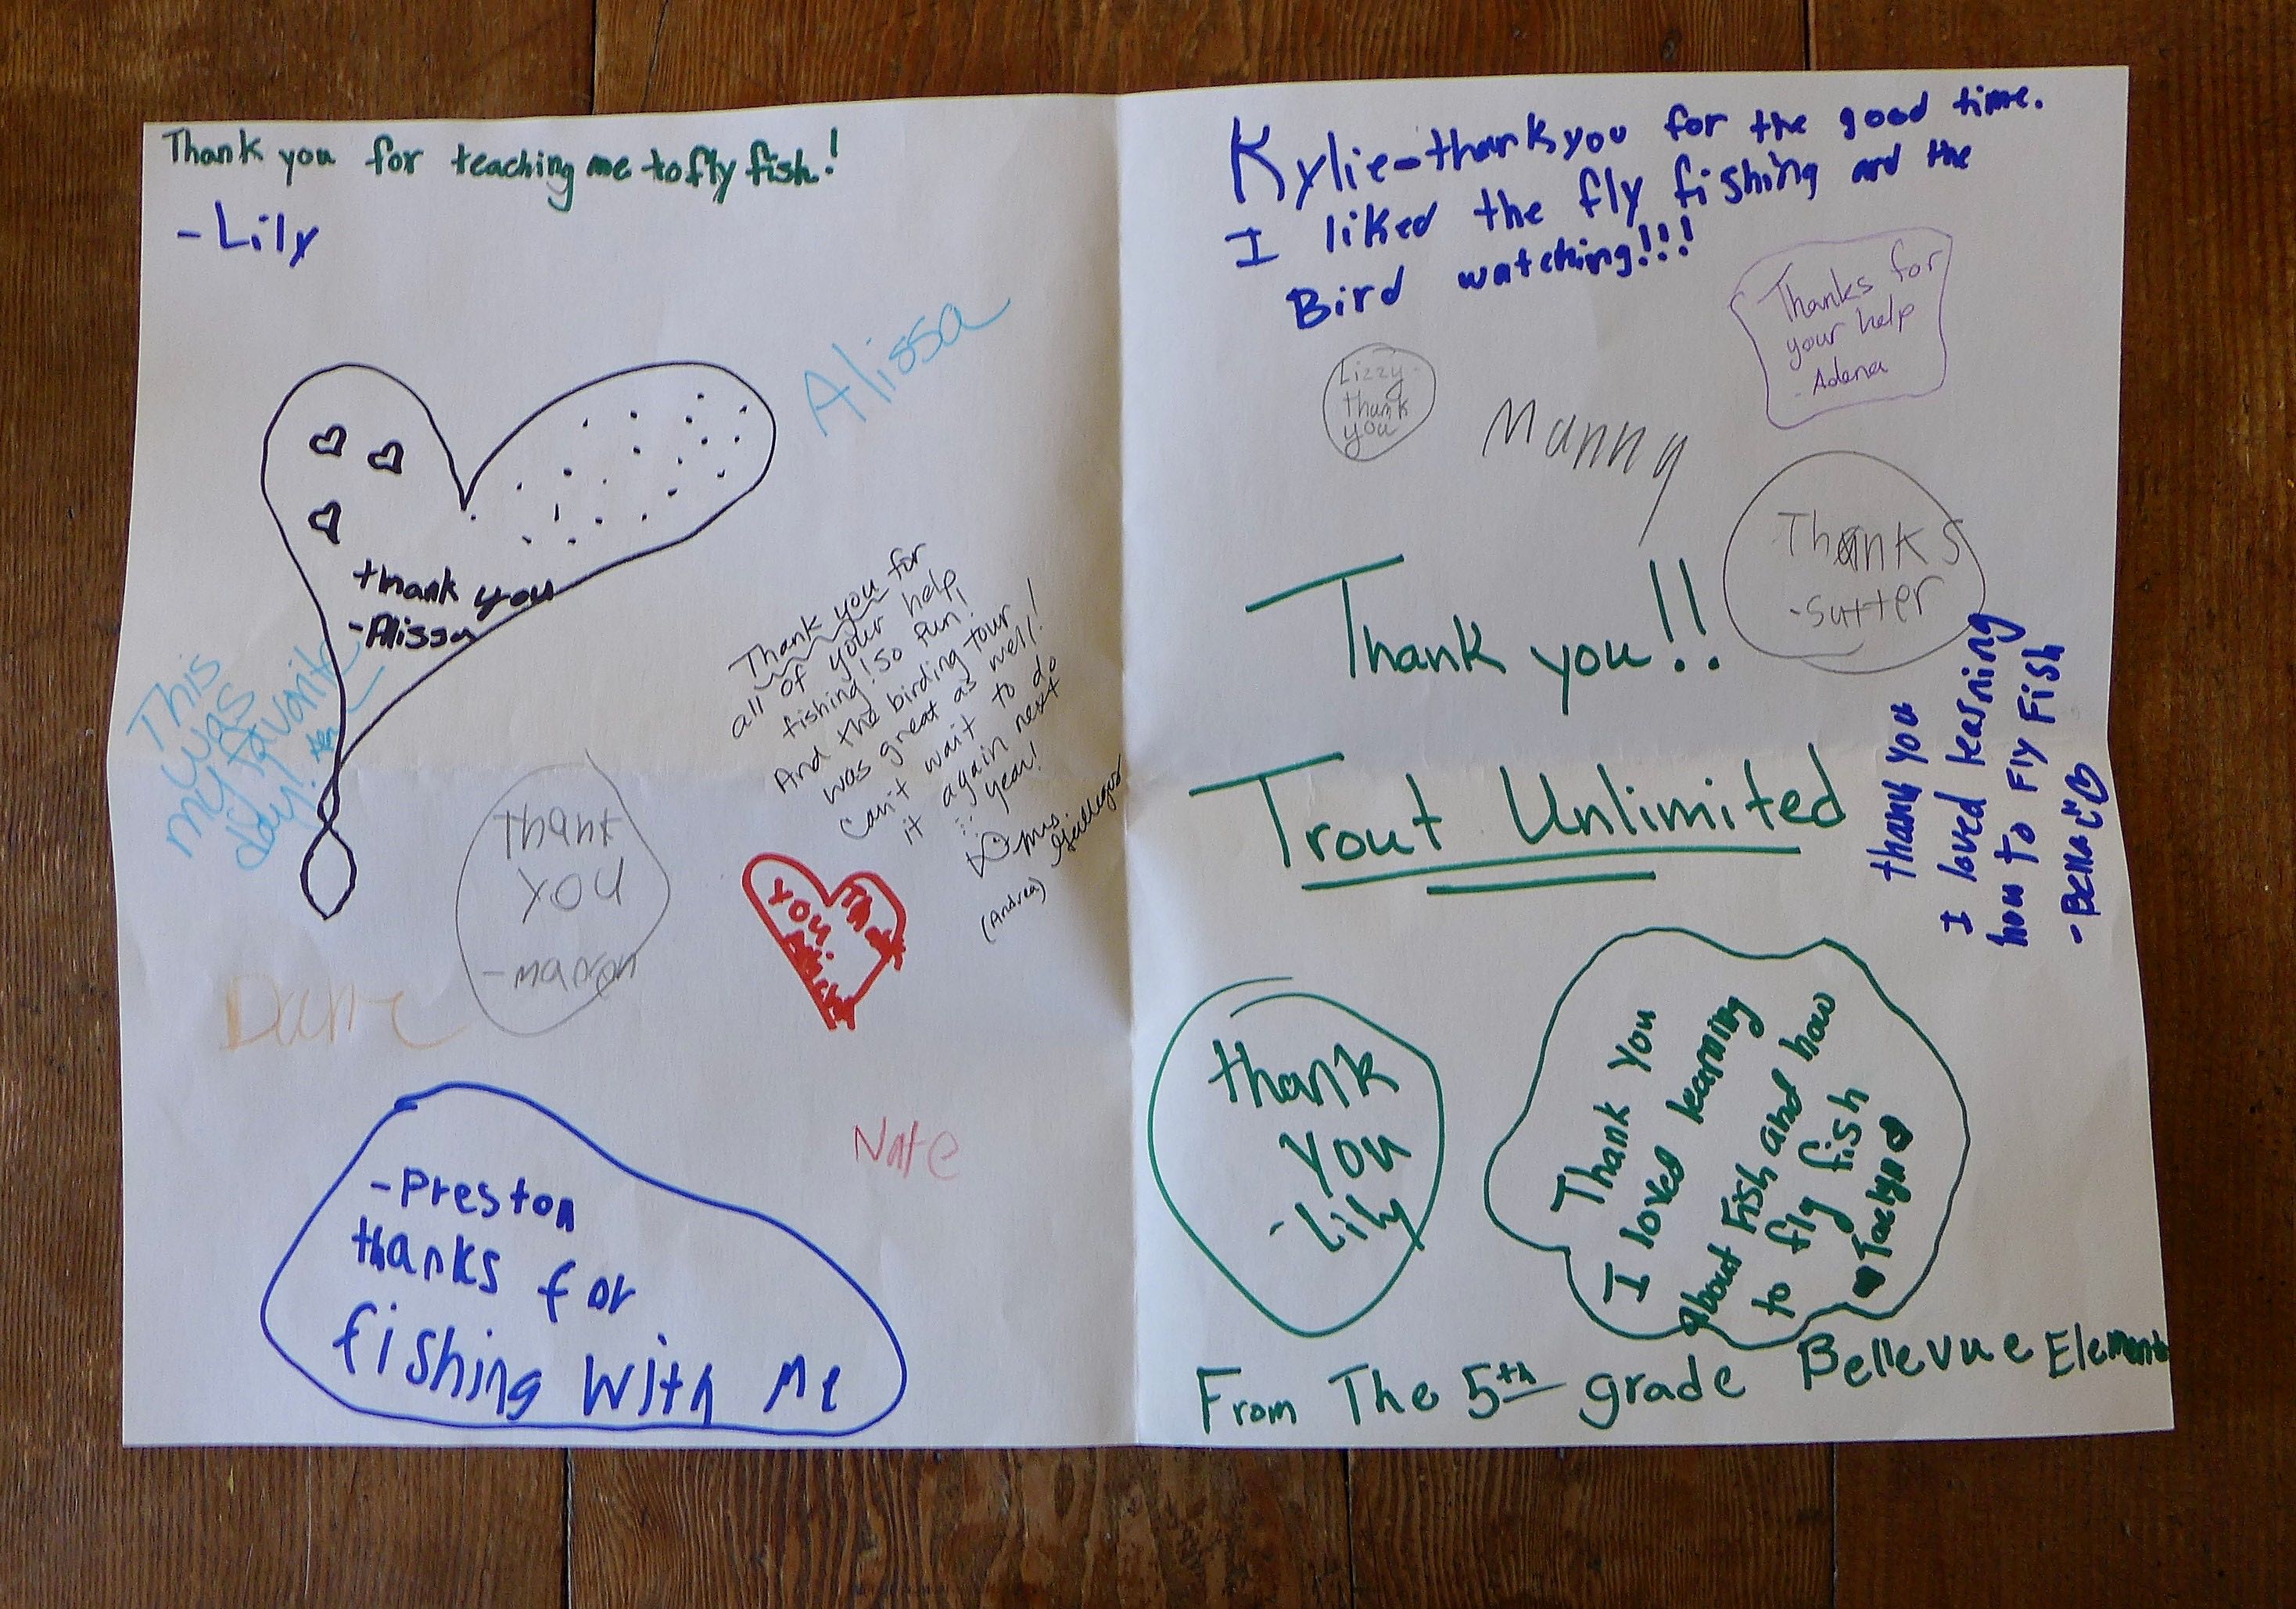 Thank you for teaching me to fly fish!
-Lily
Alissa
thank you
-Alissa
This
was
my favorite
day!
Thank you for
all of your help
fishing! So fun!
And the birding tour!
was great as well!
Can't wait to do
it again next
year!
Mrs.
(Andrea)
Thank
you
YOU
Nate
-Preston
thanks for
fishing with me
Kylie-thank you for the good time.
I liked the fly fishing and the
Bird watching!!!
Thanks for
your help
-Adena
Lizzy-
thank
you
Manny
Thanks
-Sutter
Thank you!!
Trout Unlimited
thank you
I loved learning
how to Fly Fish
-Bella
thank
you
-Lily
Thank you
I loved learning
about Fish and how
to fly fish
Jaelyn
From The 5th grade Bellevue Element